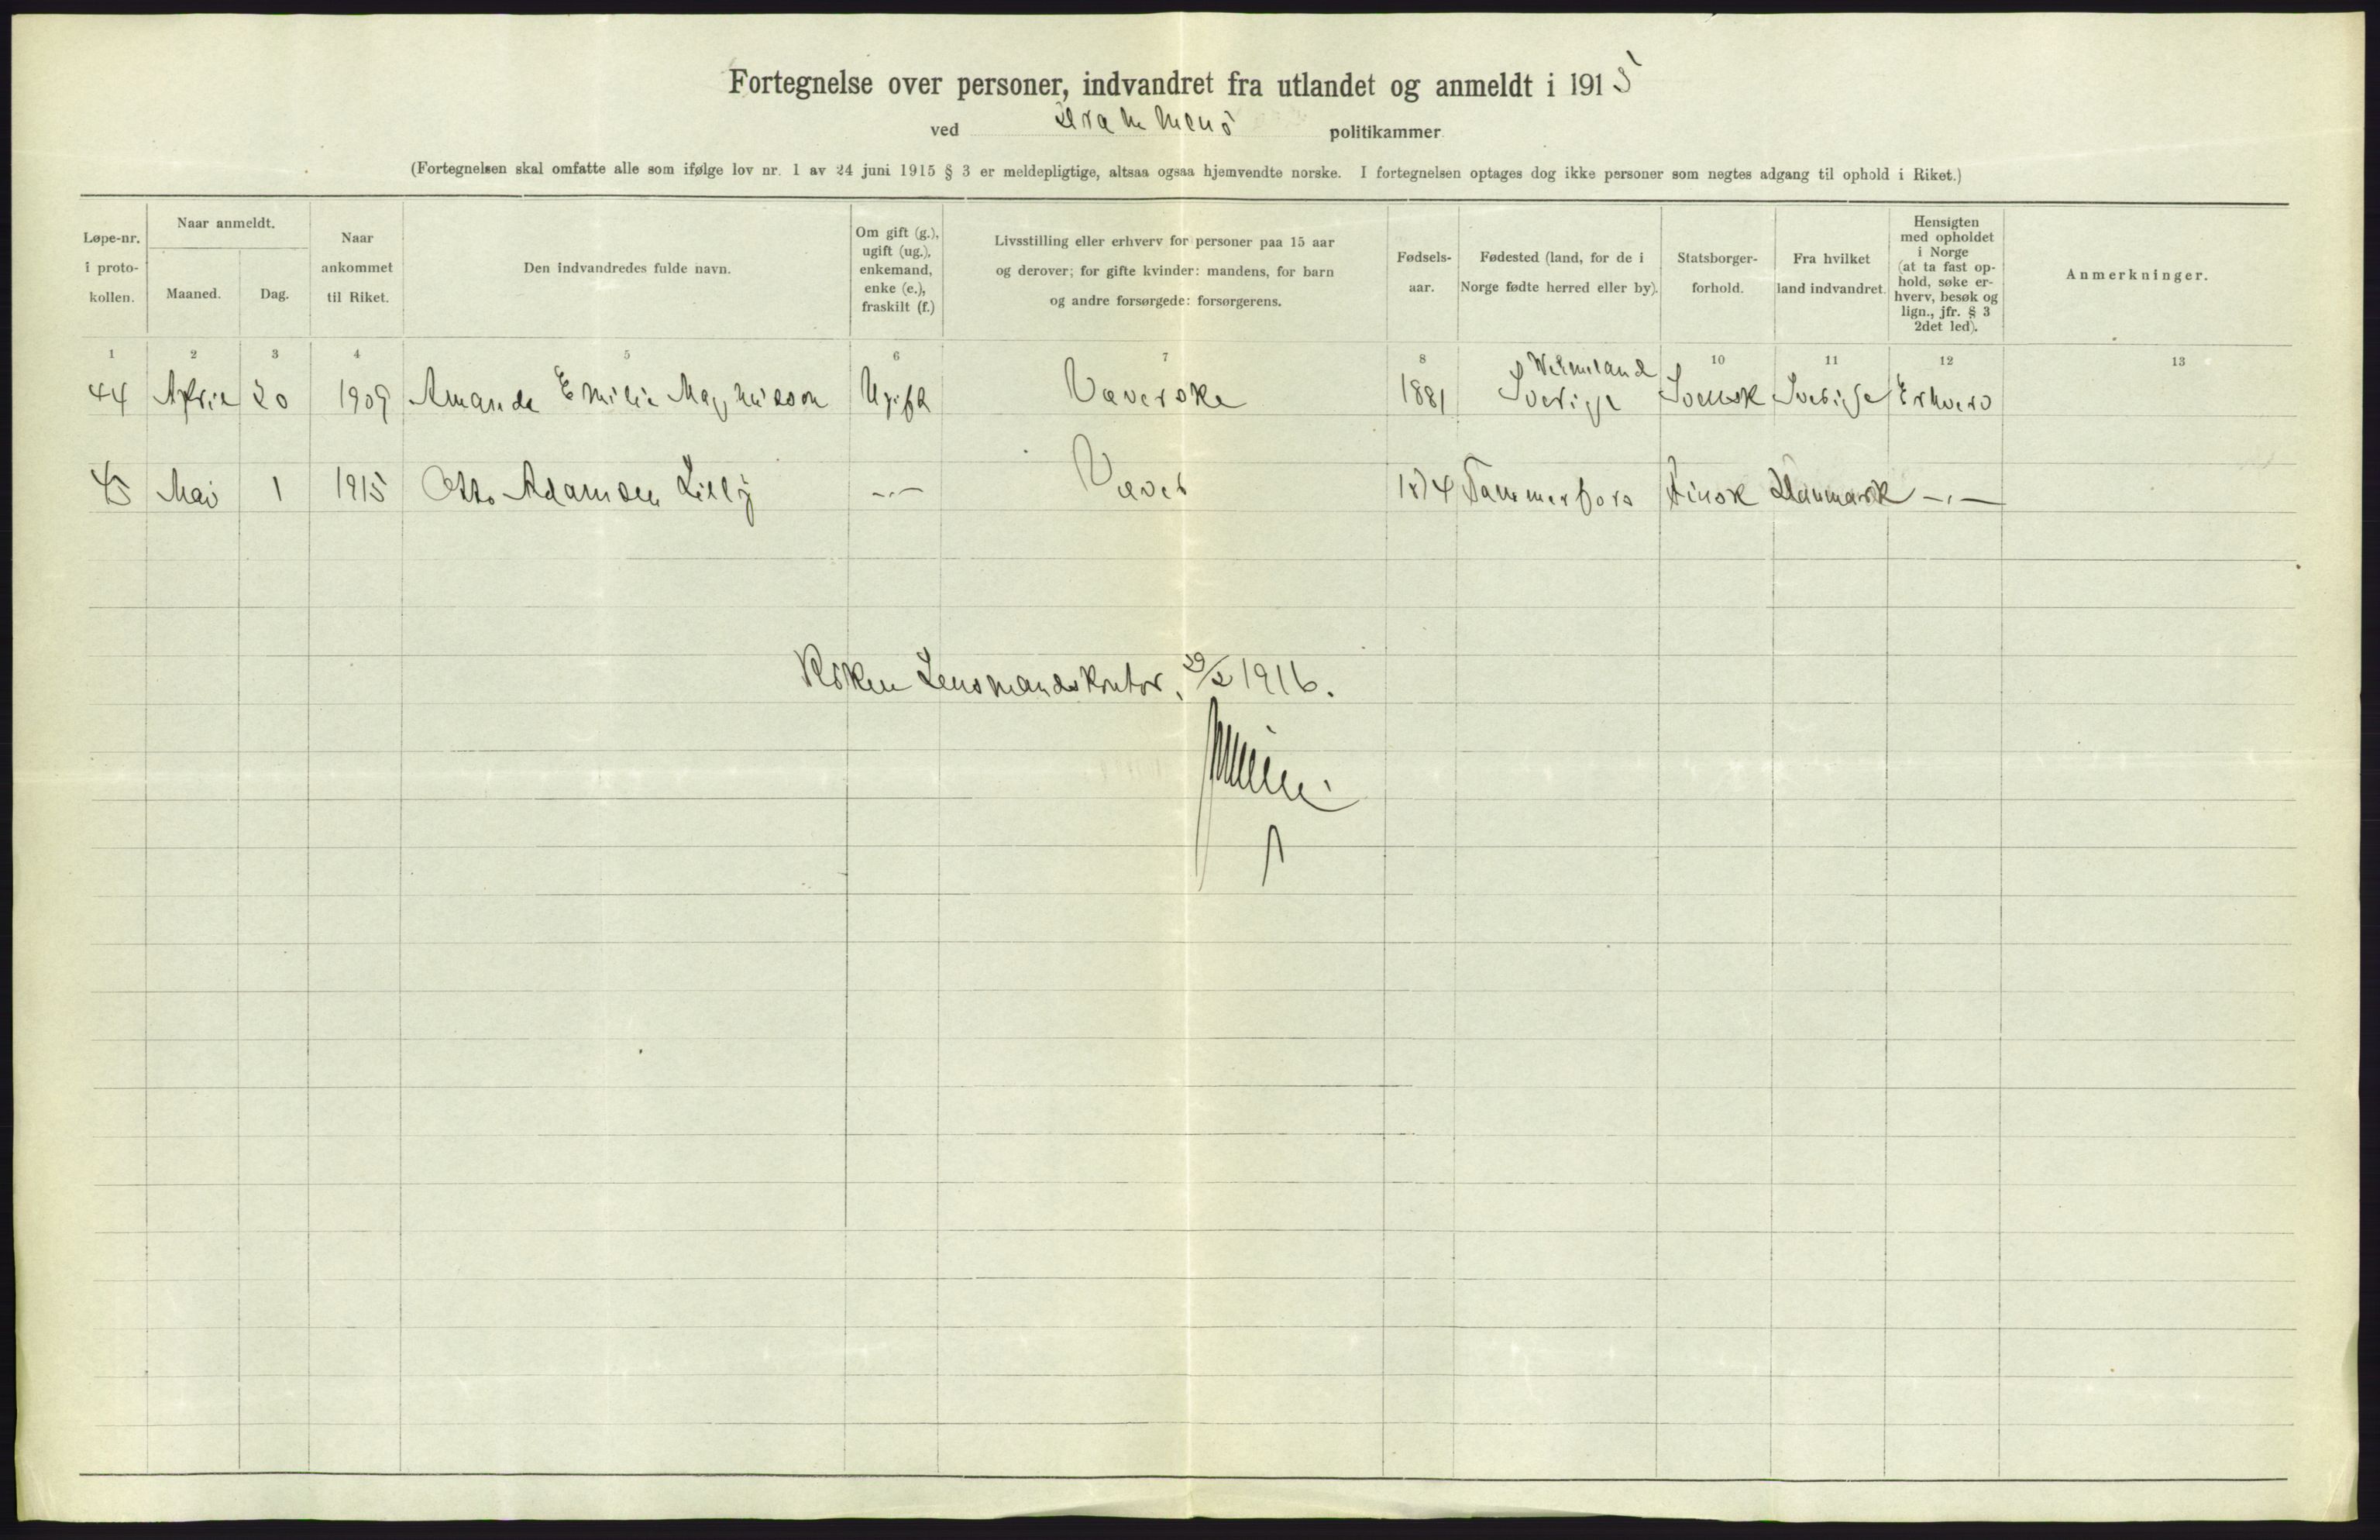 Fortegnelse over personer, indvandret fra utlandet og anmeldt i 1915
ved Drammens politikammer
(Fortegnelsen skal omfatte alle som ifølge lov nr. 1 av 24 juni 1915 § 3 er meldepligtige, altsaa ogsaa hjemvendte norske. I fortegnelsen optages dog ikke personer som negtes adgang til ophold i Riket.)
Løpe-nr.
i proto-
kollen.
Naar anmeldt.
Maaned.
Dag.
Naar
ankommet
til Riket.
Den indvandredes fulde navn.
Om gift (g.),
ugift (ug.),
enkemand,
enke (e.),
fraskilt (f.)
Livsstilling eller erhverv for personer paa 15 aar
og derover; for gifte kvinder: mandens, for barn
og andre forsørgede: forsørgerens.
Fødsels-
aar.
Fødested (land, for de i
Norge fødte herred eller by).
Statsborger-
forhold.
Fra hvilket
land indvandret.
Hensigten
med opholdet
i Norge
(at ta fast op-
hold, søke er-
hverv, besøk og
lign., jfr. § 3
2det led).
Anmerkninger.
1 2 3 4 5 6 7 8 9 10 11 12 13
Wermland
44 April 20 1909 Amanda Emilie Magnusson Ugift Væverske 1881 Sverige Svensk Sverige Erhverv
45 Mai 1 1915 Otto Adamsen Lilly -"- Væver 1874 Tammerfors Finsk Danmark -"-
Røken Lensmandskontor, 29/2 1916.